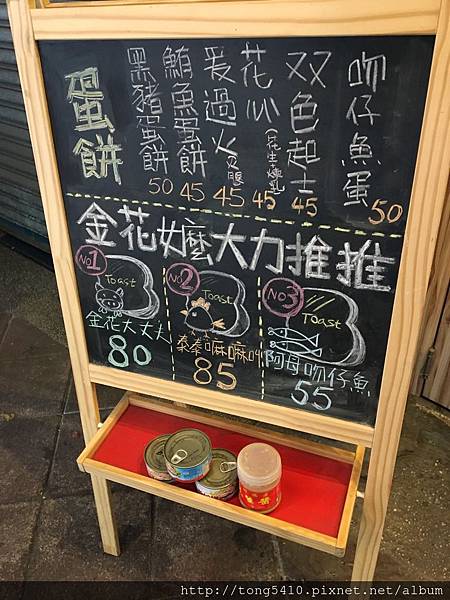 蛋餅
黑豬蛋餅 50
鮪魚蛋餅 45
愛過火(火腿) 45
花心(花生煉乳) 45
双色起士 45
吻仔魚蛋 50
金花嬤大力推推
NO1
Toast
金花大丈夫
80
NO2
Toast
泰泰嘛嘛吔
85
NO3
Toast
阿母吻仔魚
55
http://tong5410.pixnet.net/album